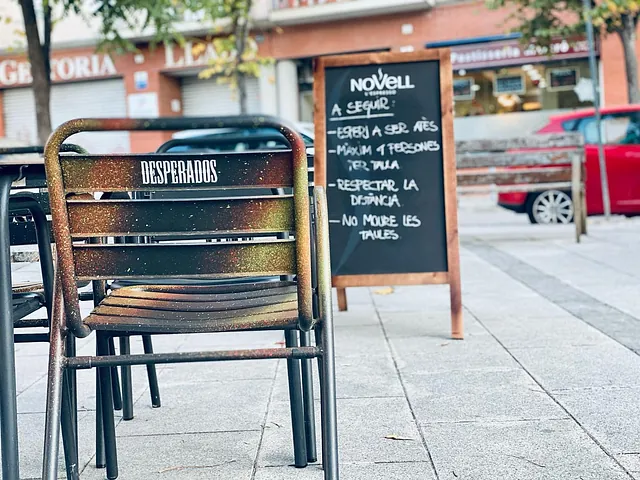 GESTORIA LLA
Pastisseria
NOVELL
L'ESPRESSO
A SEGUIR:
- ESPERI A SER ATÈS
- MÀXIM 4 PERSONES
PER TAULA
- RESPECTAR LA
DISTÀNCIA
- NO MOURE LES
TAULES.
DESPERADOS